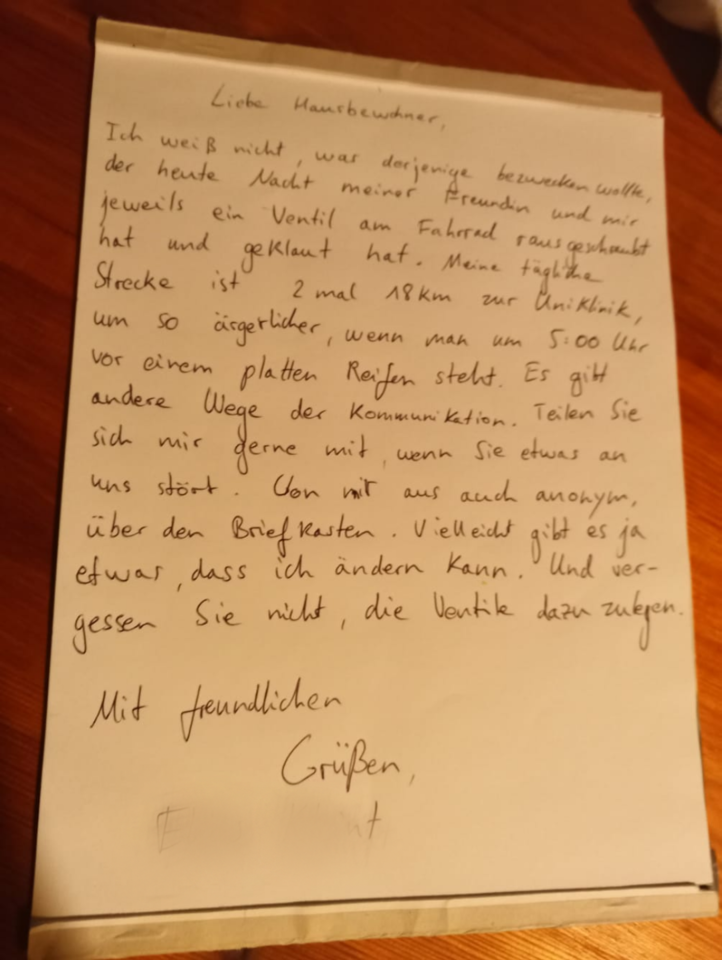 Liebe Hausbewohner,
Ich weiß nicht, was derjenige bezwecken wollte,
der heute Nacht meiner Freundin und mir
jeweils ein Ventil am Fahrrad rausgeschraubt
hat und geklaut hat. Meine tägliche
Strecke ist 2 mal 18km zur Uniklinik,
um so ärgerlicher, wenn man um 5:00 Uhr
vor einem platten Reifen steht. Es gibt
andere Wege der Kommunikation. Teilen Sie
sich mir gerne mit, wenn Sie etwas an
uns stört. Von mir aus auch anonym,
über den Briefkasten. Vielleicht gibt es ja
etwas, dass ich ändern kann. Und ver-
gessen Sie nicht, die Ventile dazu zulegen.
Mit freundlichen
Grüßen,